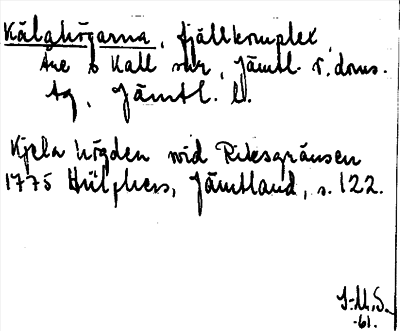 Kålghögarna, fjällkomplex,
Åre o Kall snr, Jämtl. v. doms.
tg, Jämtl. l.
Kjela högden wid Riksgränsen
1775 Hülphers, Jämtland, s. 122.
J-M.S.
-61.